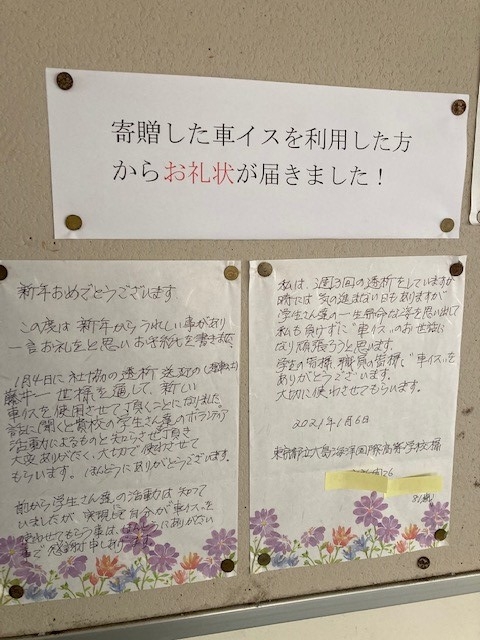 寄贈した車イスを利用した方
からお礼状が届きました！
新年おめでとうございます
この度は新年からうれしい事があり
一言お礼をと思いお手紙を書きました
1月4日に社協の透析送迎の
藤井一 様を通して、新しい
車イスを使用させて頂くことになりました
話に聞くと貴校の学生さん達のボランティア
活動によるものと知らさせて頂き
大変ありがたく、大切で使わさせて
もらいます。ほんとうにありがとうございます。
前から学生さん達の活動は知って
いましたが、実現に自分が車イスを
使わせてもらう事は、ほんとうにありがたい
事で感謝申し上げます。
私は、週3回の透析をしていますが
時には気の進まない日もありますが
学生さん達の一生懸命な姿を思い出して
私も負けずに"車イス"のお世話に
なり頑張ろうと思います。
学生の皆様、職員の皆様"車イス"を
ありがとうございます。
大切に使わさせてもらいます。
2021年1月6日
東京都立大島海洋国際高等学校様